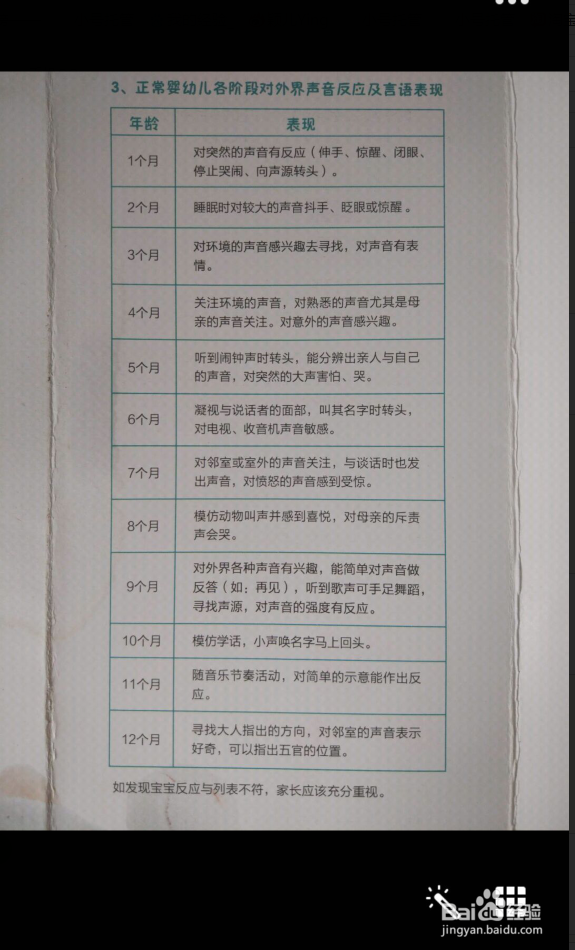 3、正常婴幼儿各阶段对外界声音反应及言语表现
年龄 表现
1个月 对突然的声音有反应（伸手、惊醒、闭眼、
停止哭闹、向声源转头）。
2个月 睡眠时对较大的声音抖手、眨眼或惊醒。
3个月 对环境的声音感兴趣去寻找，对声音有表
情。
4个月 关注环境的声音，对熟悉的声音尤其是母
亲的声音关注。对意外的声音感兴趣。
5个月 听到闹钟声时转头，能分辨出亲人与自己
的声音，对突然的大声害怕、哭。
6个月 凝视与说话者的面部，叫其名字时转头，
对电视、收音机声音敏感。
7个月 对邻室或室外的声音关注，与谈话时也发
出声音，对愤怒的声音感到受惊。
8个月 模仿动物叫声并感到喜悦，对母亲的斥责
声会哭。
9个月 对外界各种声音有兴趣，能简单对声音做
反答（如：再见），听到歌声可手足舞蹈，
寻找声源，对声音的强度有反应。
10个月 模仿学话，小声唤名字马上回头。
11个月 随音乐节奏活动，对简单的示意能作出反
应。
12个月 寻找大人指出的方向，对邻室的声音表示
好奇，可以指出五官的位置。
如发现宝宝反应与列表不符，家长应该充分重视。
Baidu经验
jingyan.baidu.com